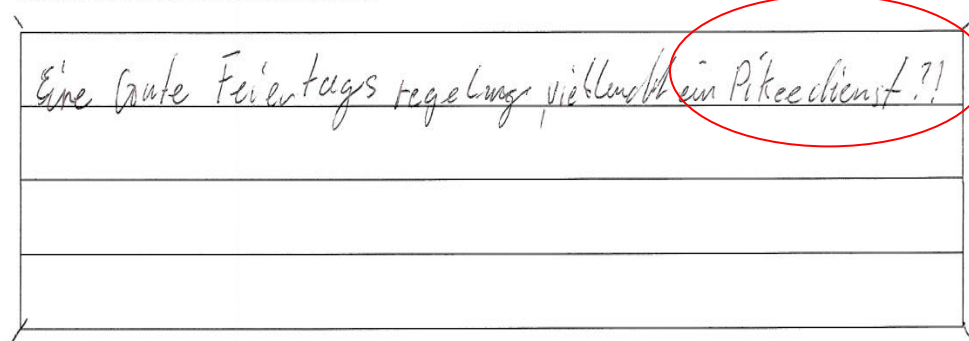 Eine Gute Feiertags regelung, vielleucht ein Pikeedienst?!